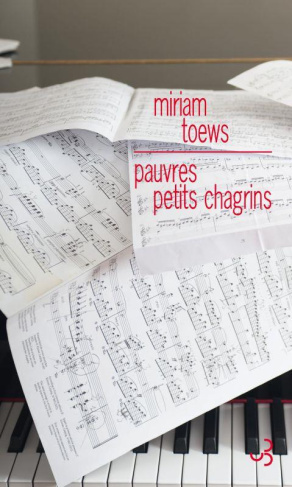 miriam
toews
pauvres
petits chagrins